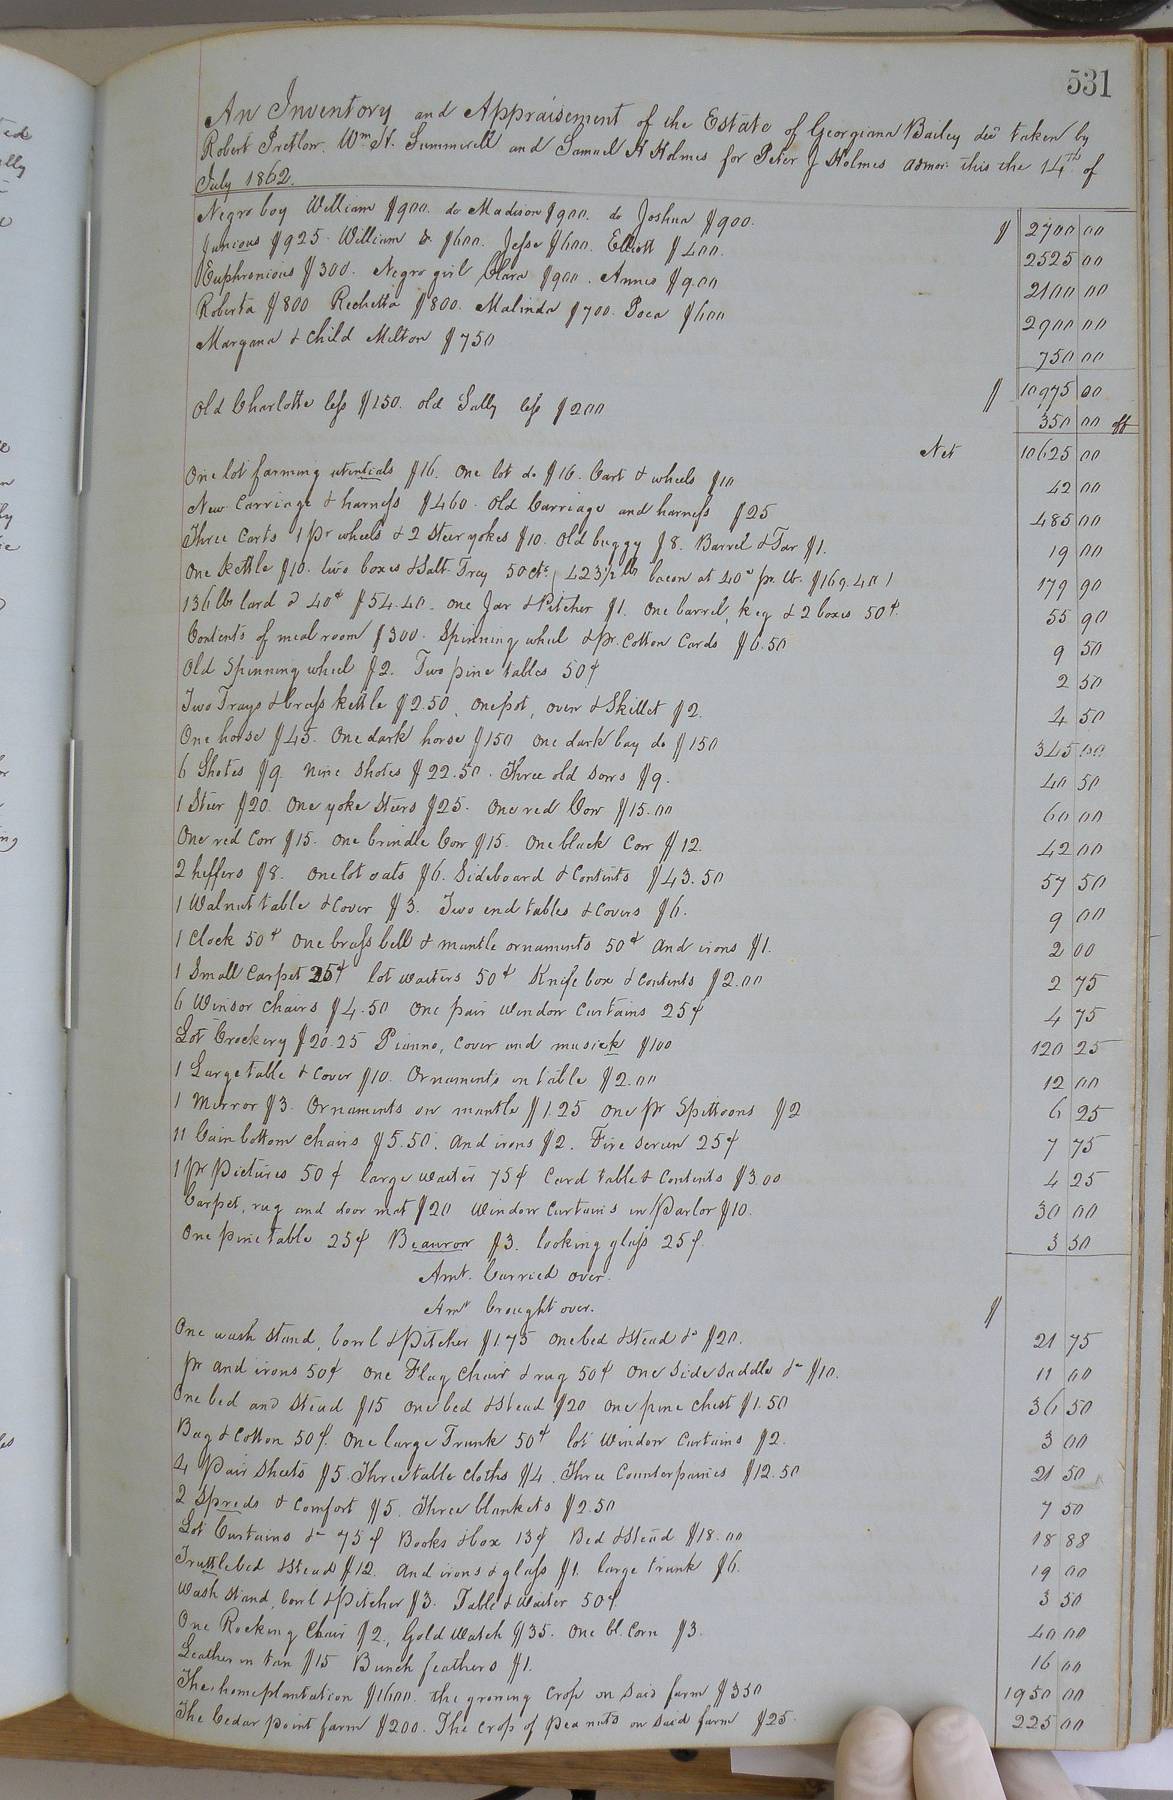 531
An Inventory and Appraisement of the Estate of Georgiana Bailey decd taken by
Robert Pretlow. Wm H. Summerell and Samuel H Holmes for Peter J Holmes admor. this the 14th of
July 1862.
Negro boy William $900. do Madison $900. do Joshua $900. $ 2700 00
Junious $925. William $600. Jesse $600. Elliott $400. 2525 00
Euphronious $300. Negro girl Clara $900. Annis $900 2100 00
Roberta $800 Rechetta $800. Malinda $700. Poca $600 2900 00
Margana & child Milton $750 750 00
$ 10975 00
Old Charlotte less $150. old Sally less $200 350 00 off
Net 10625 00
One lot farming utentials $16. One lot do $16. Cart & wheels $10 42 00
New Carriage & harness $460. Old Carriage and harness $25 485 00
Three Carts 1 pr wheels & 2 Steer yokes $10. Old buggy $8. Barrel & Tar $1. 19 00
One Kettle $10. two boxes & Salt Tray 50cts. 423½ lbs bacon at 40c pr. lb. $169.40 179 90
136 lbs lard @ 40¢ $54.40. one Jar & Pitcher $1. One barrel, keg & 2 boxes 50¢. 55 90
Contents of meal room $3.00. Spinning wheel & pr. Cotton Cards $6.50 9 50
Old Spinning wheel $2. Two pine tables 50¢ 2 50
Two Trays & brass kettle $2.50, one pot, oven & Skillet $2. 4 50
One horse $45. One dark horse $150 One dark bay do $150 345 00
6 Shotes $9. Nine Shotes $22.50. Three old Sows $9. 40 50
1 Steer $20. One yoke Steers $25. One red Cow $15.00 60 00
One red Cow $15. One brindle Cow $15. One black Cow $12. 42 00
2 heffers $8. One lot oats $6. Sideboard & Contents $43.50 57 50
1 Walnut table & Cover $3. Two end tables & Covers $6. 9 00
1 Clock 50¢ One brass bell & mantle ornaments 50¢ And irons $1. 2 00
1 Small Carpet 25¢ lot waiters 50¢ Knife box & contents $2.00 2 75
6 Winsor Chairs $4.50 One pair window Curtains 25¢ 4 75
Lot Crockery $20.25 Pianno, Cover and musick $100 120 25
1 Large table & Cover $10. Ornaments on table $2.00 12 00
1 Mirror $3. Ornaments on mantle $1.25 One pr Spittoons $2 6 25
11 Cain bottom Chairs $5.50. And irons $2. Fire Screen 25¢ 7 75
1 pr Pictures 50¢ large waiter 75¢ Card table & contents $3.00 4 25
Carpet, rug and door mat $20 Window Curtains in Parlor $10. 30 00
One pine table 25¢ Beaurow $3. looking glass 25¢. 3 50
Amt. Carried over.
Amt brought over. $
One wash Stand, bowl & Pitcher $1.75 One bed & Stead &c $20. 21 75
pr and irons 50¢ One Flag Chair & rug 50¢ One Side Saddle &c $10. 11 00
One bed and Stead $15 one bed & Stead $20 One pine Chest $1.50 36 50
Bag & Cotton 50¢. One large Trunk 50¢ lot Window Curtains $2. 3 00
4 Pair Sheets $5. Three table cloths $4. Three Counterpanies $12.50 21 50
2 Spreds & Comfort $5. Three blankets $2.50 7 50
Lot Curtains &c 75¢ Books & box 13¢ Bed & Stead $18.00 18 88
Truttlebed & Stead $12. And irons & glass $1. large trunk $6. 19 00
Wash Stand, bowl & Pitcher $3. Table & Waiter 50¢. 3 50
One Rocking Chair $2., Gold Watch $35. One bl. Corn $3. 40 00
Leather in tan $15 Bunch feathers $1. 16 00
The home plantation $1600. the growing Crop on Said farm $350 1950 00
The Cedar point farm $200. The Crop of Pea nuts on said farm $25. 225 00